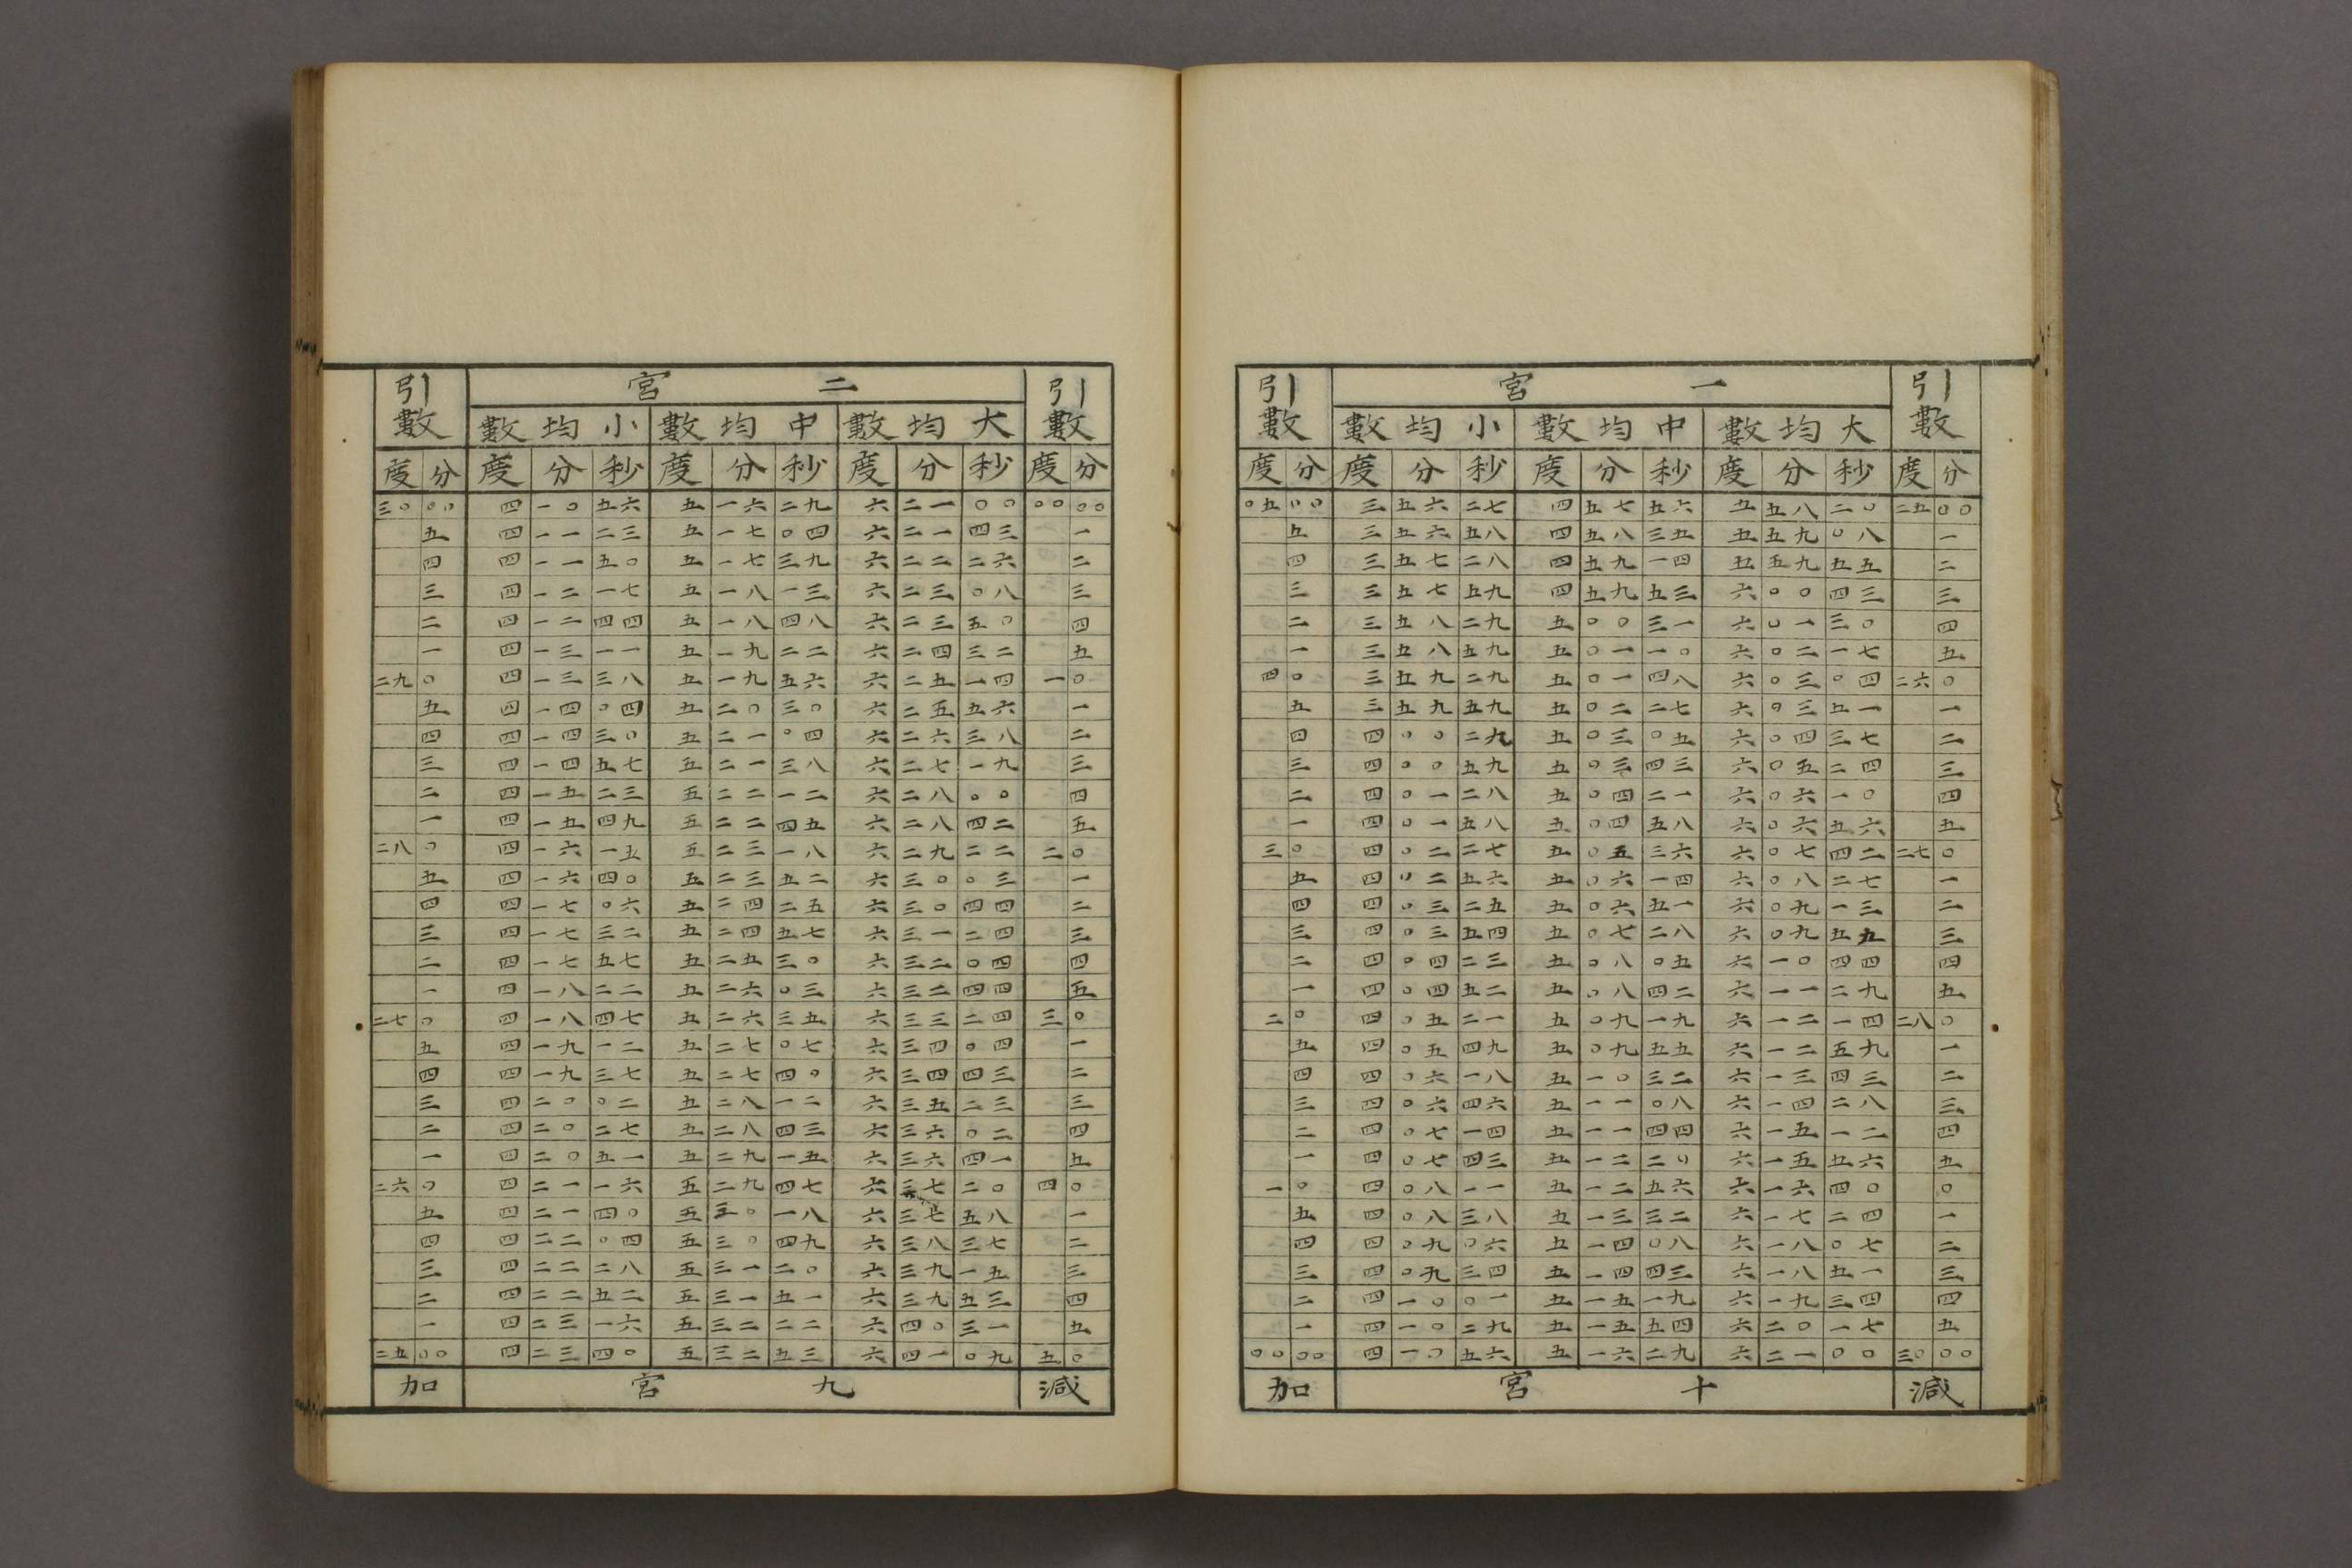 引數 一宮 引數
大均數 中均數 小均數
度 分 度 分 秒 度 分 秒 度 分 秒 度 分
〇五 〇〇 三 五六 二七 四 五七 五六 五 五八 二〇 二五 〇〇
五 三 五六 五八 四 五八 三五 五 五九 〇八 一
四 三 五七 二八 四 五九 一四 五 五九 五五 二
三 三 五七 五九 四 五九 五三 六 〇〇 四三 三
二 三 五八 二九 五 〇〇 三一 六 〇一 三〇 四
一 三 五八 五九 五 〇一 一〇 六 〇二 一七 五
四 〇 三 五九 二九 五 〇一 四八 六 〇三 〇四 二六 〇
五 三 五九 五九 五 〇二 二七 六 〇三 五一 一
四 四 〇〇 二九 五 〇三 〇五 六 〇四 三七 二
三 四 〇〇 五九 五 〇三 四三 六 〇五 二四 三
二 四 〇一 二八 五 〇四 二一 六 〇六 一〇 四
一 四 〇一 五八 五 〇四 五八 六 〇六 五六 五
三 〇 四 〇二 二七 五 〇五 三六 六 〇七 四二 二七 〇
五 四 〇二 五六 五 〇六 一四 六 〇八 二七 一
四 四 〇三 二五 五 〇六 五一 六 〇九 一三 二
三 四 〇三 五四 五 〇七 二八 六 〇九 五九 三
二 四 〇四 二三 五 〇八 〇五 六 一〇 四四 四
一 四 〇四 五二 五 〇八 四二 六 一一 二九 五
二 〇 四 〇五 二一 五 〇九 一九 六 一二 一四 二八 〇
五 四 〇五 四九 五 〇九 五五 六 一二 五九 一
四 四 〇六 一八 五 一〇 三二 六 一三 四三 二
三 四 〇六 四六 五 一一 〇八 六 一四 二八 三
二 四 〇七 一四 五 一一 四四 六 一五 一二 四
一 四 〇七 四三 五 一二 二〇 六 一五 五六 五
一 〇 四 〇八 一一 五 一二 五六 六 一六 四〇 〇
五 四 〇八 三八 五 一三 三二 六 一七 二四 一
四 四 〇九 〇六 五 一四 〇八 六 一八 〇七 二
三 四 〇九 三四 五 一四 四三 六 一八 五一 三
二 四 一〇 〇一 五 一五 一九 六 一九 三四 四
一 四 一〇 二九 五 一五 五四 六 二〇 一七 五
〇〇 〇〇 四 一〇 五六 五 一六 二九 六 二一 〇〇 三〇 〇〇
加 十宮 減
引數 二宮 引數
大均數 中均數 小均數
度 分 度 分 秒 度 分 秒 度 分 秒 度 分
三〇 〇〇 四 一〇 五六 五 一六 二九 六 二一 〇〇 〇〇 〇〇
五 四 一一 二三 五 一七 〇四 六 二一 四三 一
四 四 一一 五〇 五 一七 三九 六 二二 二六 二
三 四 一二 一七 五 一八 一三 六 二三 〇八 三
二 四 一二 四四 五 一八 四八 六 二三 五〇 四
一 四 一三 一一 五 一九 二二 六 二四 三二 五
二九 〇 四 一三 三八 五 一九 五六 六 二五 一四 一 〇
五 四 一四 〇四 五 二〇 三〇 六 二五 五六 一
四 四 一四 三〇 五 二一 〇四 六 二六 三八 二
三 四 一四 五七 五 二一 三八 六 二七 一九 三
二 四 一五 二三 五 二二 一二 六 二八 〇〇 四
一 四 一五 四九 五 二二 四五 六 二八 四二 五
二八 〇 四 一六 一五 五 二三 一八 六 二九 二二 二 〇
五 四 一六 四〇 五 二三 五二 六 三〇 〇三 一
四 四 一七 〇六 五 二四 二五 六 三〇 四四 二
三 四 一七 三二 五 二四 五七 六 三一 二四 三
二 四 一七 五七 五 二五 三〇 六 三二 〇四 四
一 四 一八 二二 五 二六 〇三 六 三二 四四 五
二七 〇 四 一八 四七 五 二六 三五 六 三三 二四 三 〇
五 四 一九 一二 五 二七 〇七 六 三四 〇四 一
四 四 一九 三七 五 二七 四〇 六 三四 四三 二
三 四 二〇 〇二 五 二八 一二 六 三五 二三 三
二 四 二〇 二七 五 二八 四三 六 三六 〇二 四
一 四 二〇 五一 五 二九 一五 六 三六 四一 五
二六 〇 四 二一 一六 五 二九 四七 六 三七 二〇 四 〇
五 四 二一 四〇 五 三〇 一八 六 三七 五八 一
四 四 二二 〇四 五 三〇 四九 六 三八 三七 二
三 四 二二 二八 五 三一 二〇 六 三九 一五 三
二 四 二二 五二 五 三一 五一 六 三九 五三 四
一 四 二三 一六 五 三二 二二 六 四〇 三一 五
二五 〇〇 四 二三 四〇 五 三二 五三 六 四一 〇九 五 〇
加 九宮 減